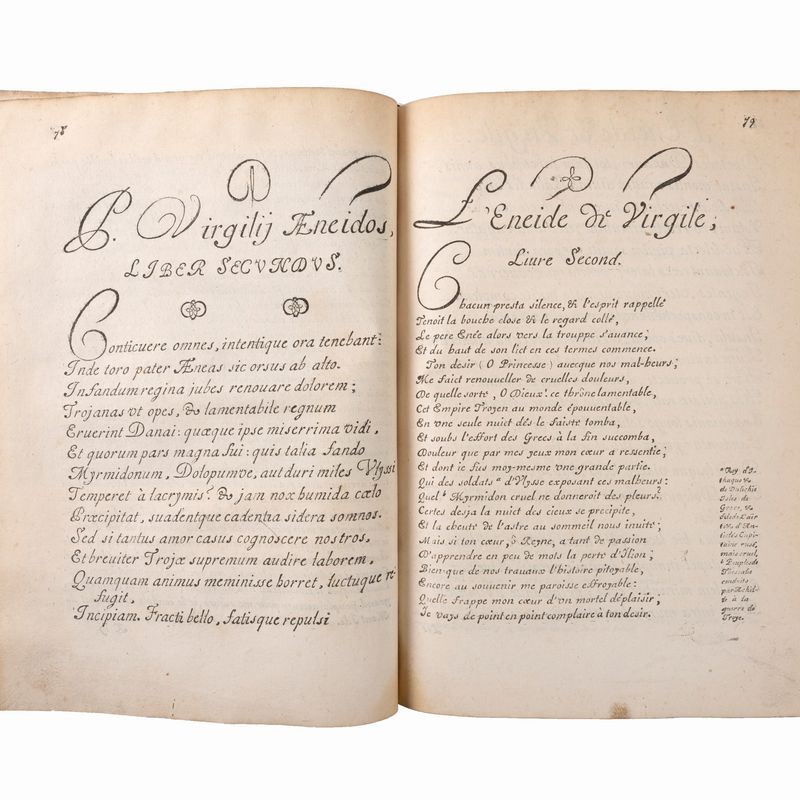 78
P. Virgilij Æneidos,
LIBER SECVNDVS.
Conticuere omnes, intentique ora tenebant:
Inde toro pater Æneas sic orsus ab alto.
Infandum regina jubes renouare dolorem;
Trojanas vt opes, & lamentabile regnum
Eruerint Danai: quæque ipse miserrima vidi,
Et quorum pars magna fui: quis talia fando
Myrmidonum, Dolopumve, aut duri miles Vlyssi
Temperet à lacrymis? & jam nox humida cœlo
Præcipitat, suadentque cadentia sidera somnos.
Sed si tantus amor casus cognoscere nostros,
Et breuiter Trojæ supremum audire laborem,
Quamquam animus meminisse horret, luctuque re
fugit,
Incipiam. Fracti bello, fatisque repulsi
79
L'Eneide de Virgile,
Liure Second.
Chacun presta silence, & l'esprit rappellé
Tenoit la bouche close & le regard collé,
Le pere Enée alors vers la trouppe s'auance;
Et du haut de son lict en ces termes commence.
Ton desir (O Princesse) auecque nos mal-heurs;
Me faict renouueller de cruelles douleurs,
De quelle sorte, O Dieux! ce thrône lamentable,
Cet Empire Troyen au monde épouuentable,
En vne seule nuict dés le faiste tomba,
Et soubs l'effort des Grecs à la fin succomba,
Douleur que par mes yeux mon cœur a ressentie;
Et dont ie fus moy-mesme vne grande partie.
Qui des soldats a d'Vlysse exposant ces malheurs:
Quel b Myrmidon cruel ne donneroit des pleurs?
Certes desja la nuict des cieux se precipite,
Et la cheute de l'astre au sommeil nous inuite;
Mais si ton cœur, ô Reyne, a tant de passion
D'apprendre en peu de mots la perte d'Ilion;
Bien-que de nos trauaux l'histoire pitoyable,
Encore au souuenir me paroisse effroyable:
Quelle frappe mon cœur d'vn mortel déplaisir;
Ie vays de point en point complaire à ton desir.
a Roy d'I-
thaque &
de Dulichie
Isles de
Grece, &
fils de Laër
te, d'An-
ticlée Capi-
taine rusé,
mais cruel,
b Peuples de
Thessalie
conduits
par Achil-
le à la
guerre de
Troye.